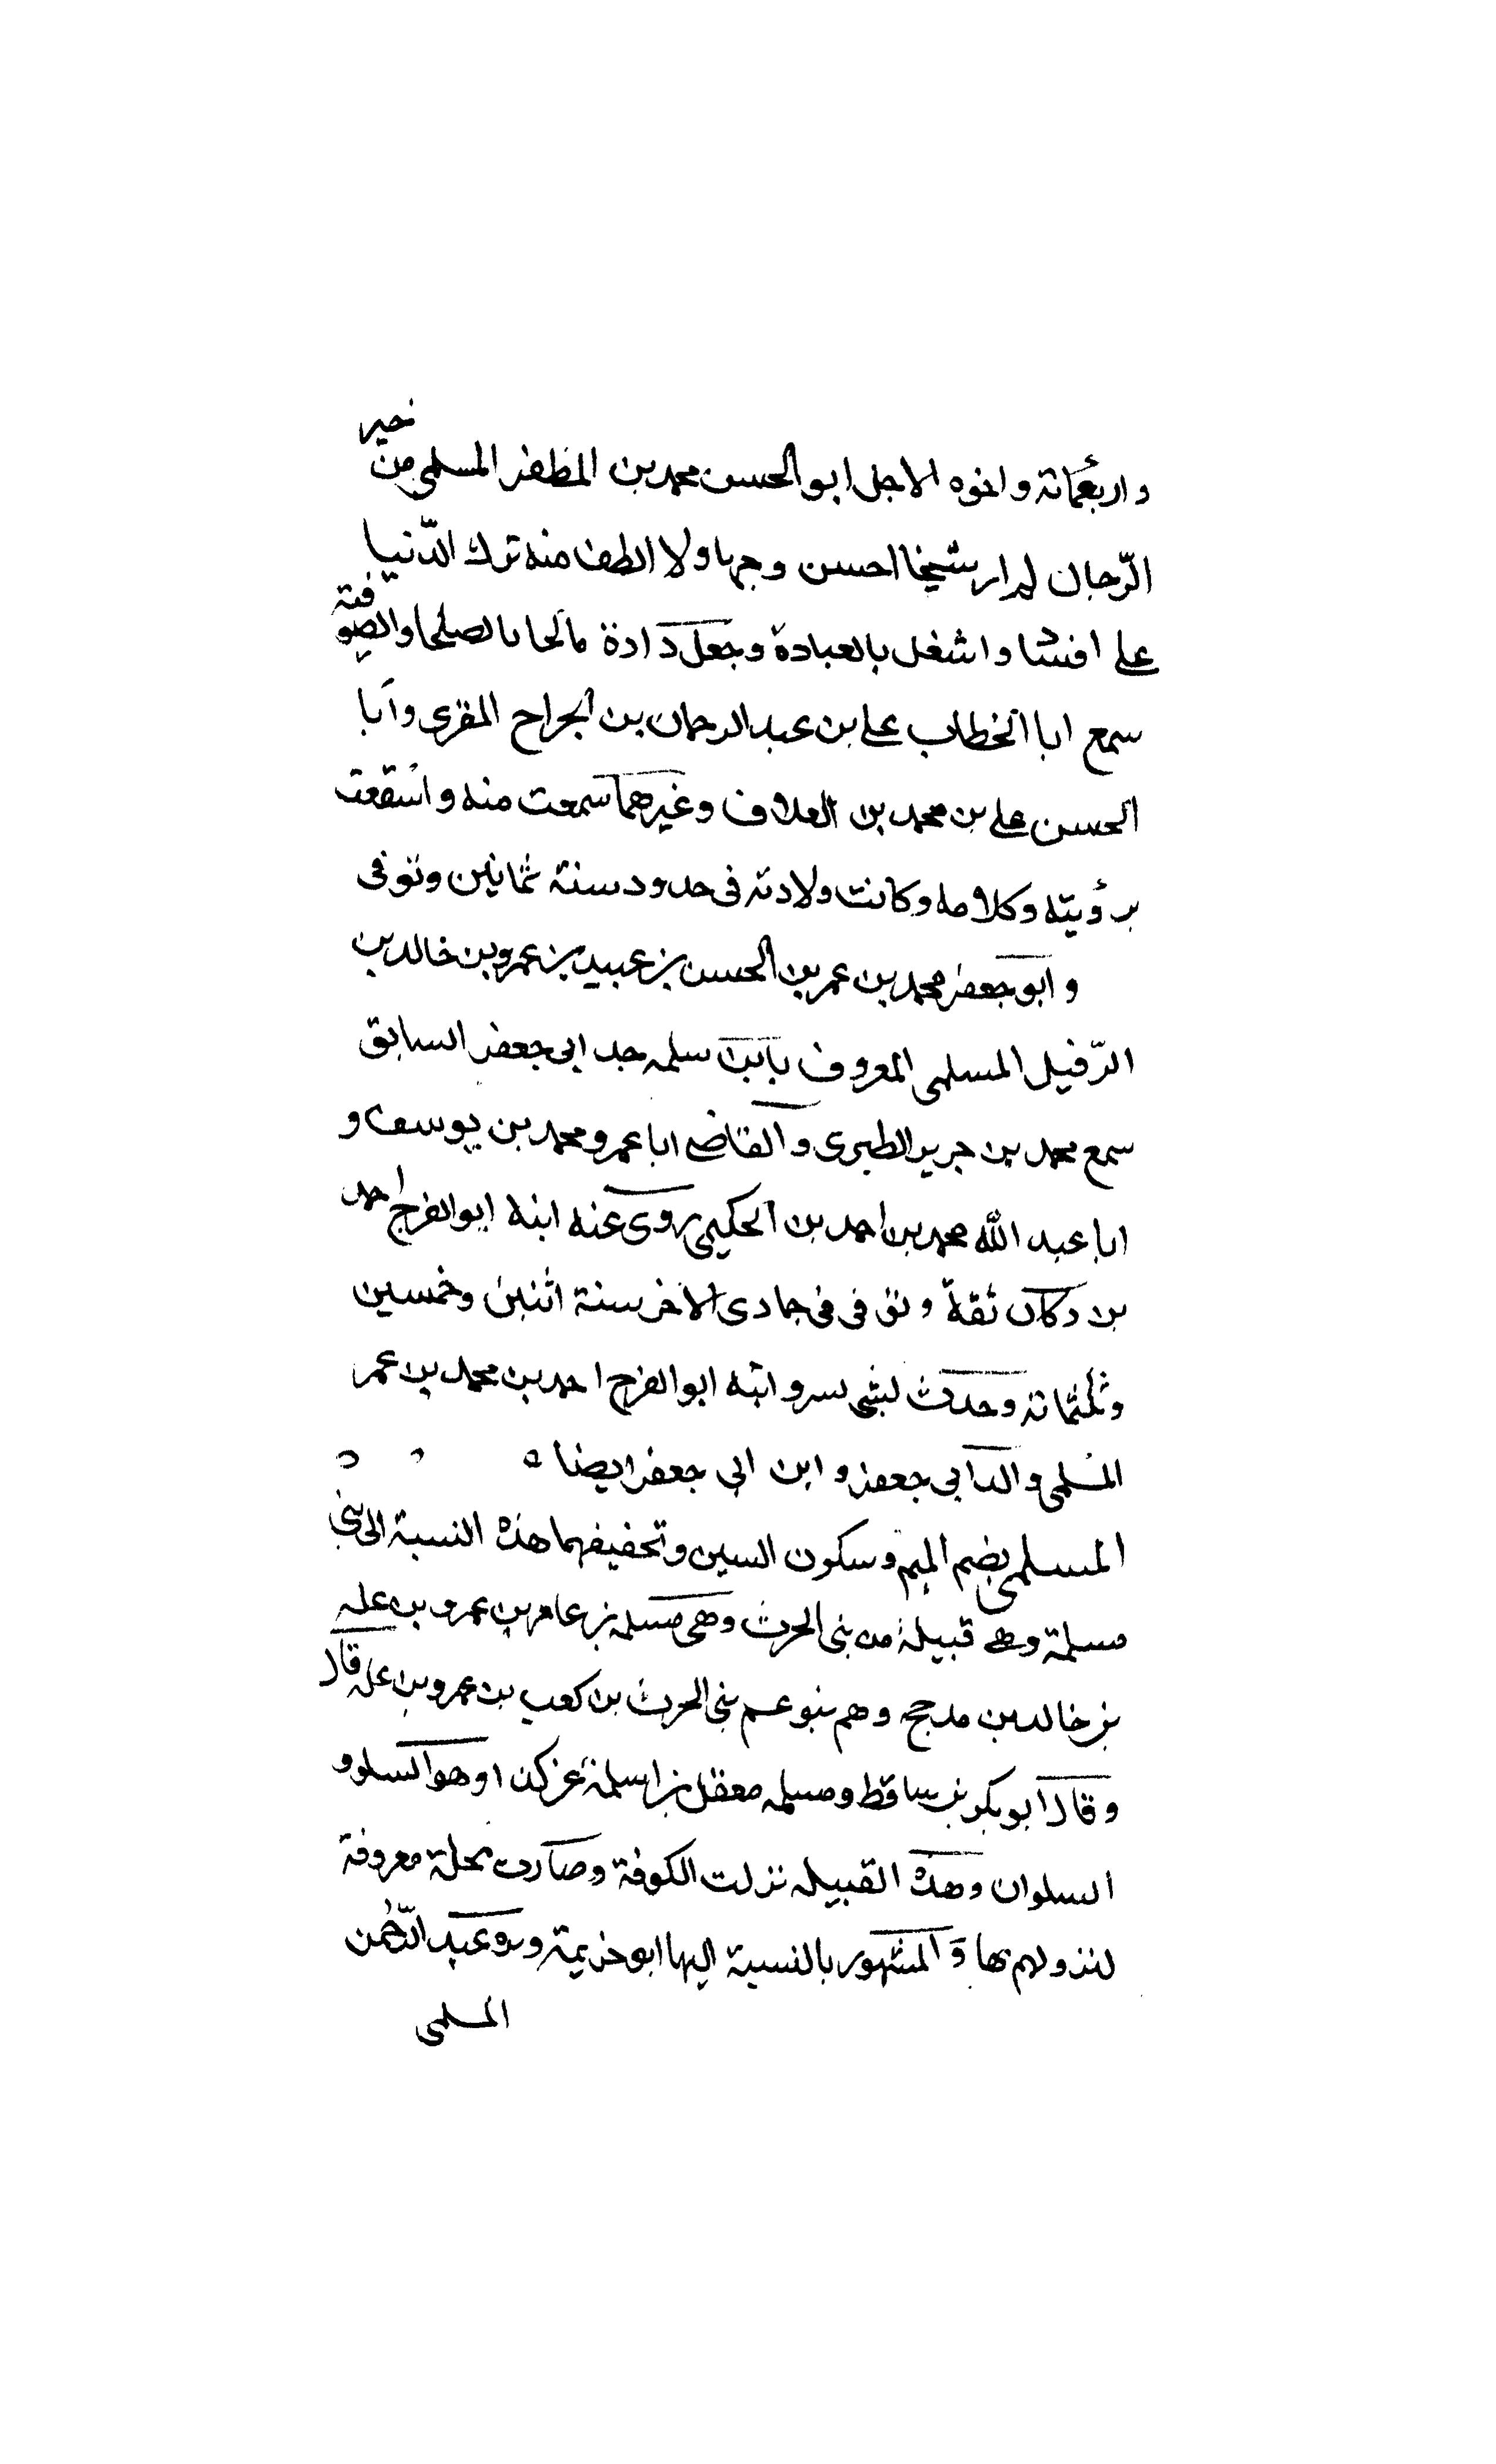 واربعمائة واخوه الاجل ابو الحسن محمد بن المظفر المسلمي من خير
الرّجال لم ار شيخا احسن وجها ولا الطف منه ترك الدّنيا
على افشا واشغل بالعبادة وجعل دادة مالحا بالصلحا والصوفية
سمع ابا الخطاب على بن عبد الرحمان بن الجراح المقرى وابا
الحسن على بن محمد بن العلاف وغيرهما سمعت منه وانتفعت
برؤيته وكلامه وكانت ولادته فى حدود سنة ثمانين وتوفى
وابو جعفر محمد بن عمر بن الحسن بن عبيد بن عمرو بن خالد بن
الرّفيل المسلمى المعروف بابن سلمه جد ابى جعفر السابق
سمع محمد بن جرير الطبرى والقاضى ابا عمرو محمد بن يوسف و
ابا عبد الله محمد بن احمد بن الحكيمى روى عنه ابنه ابو الفرج احمد
بن وكان ثقة وتوفى فى جمادى الاخر سنة اثنين وخمسين
وثلثمائة وحدث بشى يسر وابنه ابو الفرج احمد بن محمد بن عمر
المسلمى والد ابى جعفر و ابن ابى جعفر ايضا ه
المسلمى بضم الميم وسكون السين وتخفيفهما هذه النسبة الى بنى
مسلمة وهى قبيلة من بنى الحرث وهى مسلمه بن عامر بن عمرو بن عله
بن خالد بن مدحج وهم بنو عم بنى الحرث بن كعب بن عمرو بن عله قال
وقال ابو بكر بن ساقط ومسلمه معقل بن اسلمة عن كذا وهو السلو و
السلوان وهذه القبيله نزلت الكوفة وصارت محلة معروفة
لنزولهم بها و المشهور بالنسبة اليها ابو خزيمة وبره عبد الرّحمن
المسلمى